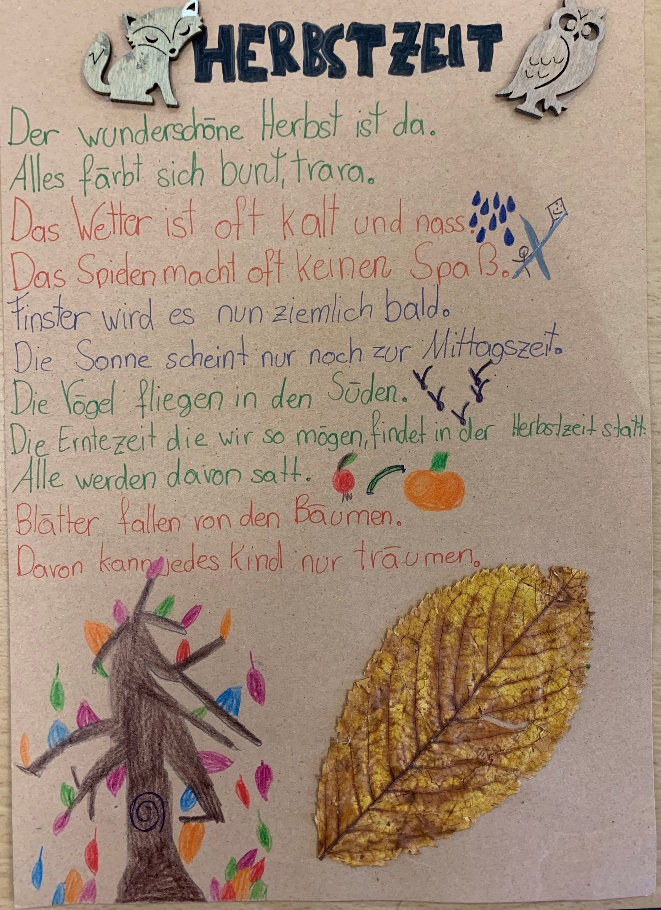 HERBSTZEIT
Der wunderschöne Herbst ist da.
Alles färbt sich bunt, trara.
Das Wetter ist oft kalt und nass.
Das Spielen macht oft keinen Spaß.
Finster wird es nun ziemlich bald.
Die Sonne scheint nur noch zur Mittagszeit.
Die Vögel fliegen in den Süden.
Die Erntezeit die wir so mögen, findet in der Herbstzeit statt.
Alle werden davon satt.
Blätter fallen von den Bäumen.
Davon kann jedes Kind nur träumen.